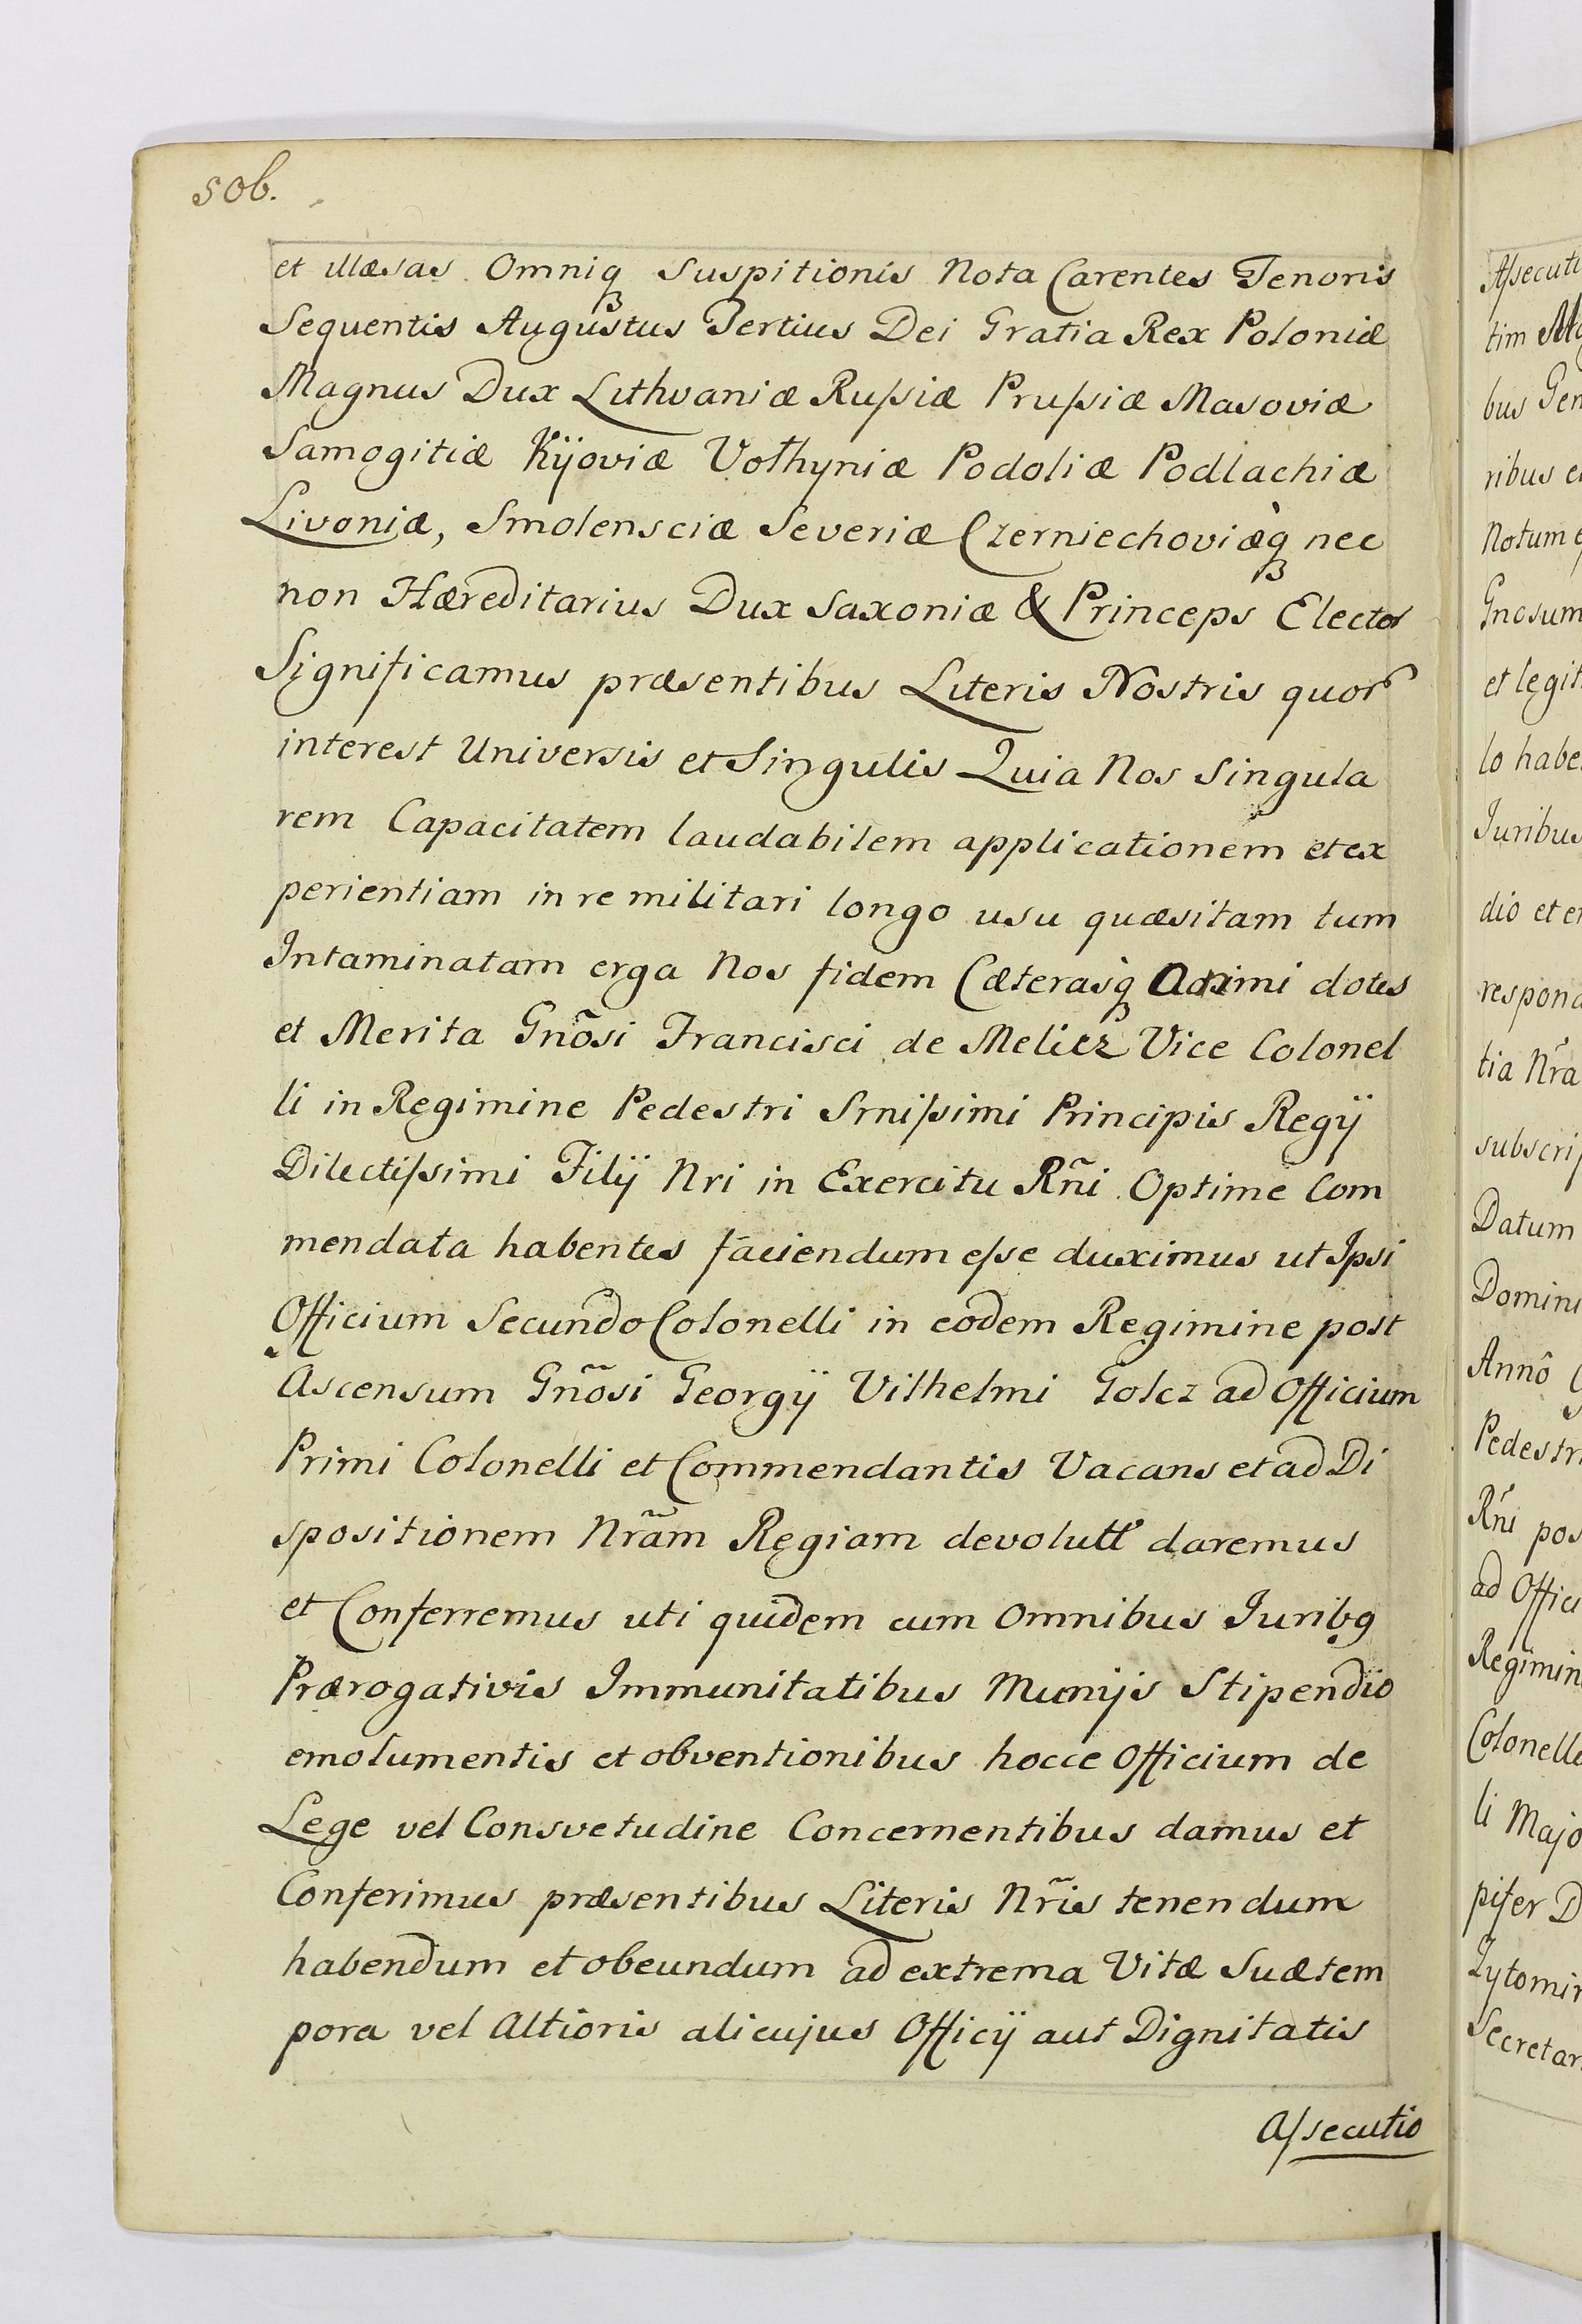 50b.
et illæsas Omniq₃ Suspitionis Nota Carentes Tenoris
Sequentis Augustus Tertius Dei Gratia Rex Poloniæ
Magnus Dux Lithvaniæ Rufsiæ Prufsiæ Masoviæ
Samogitiæ Kijoviæ Volhyniæ Podoliæ Podlachiæ
Livoniæ, Smolensciæ Severiæ Czerniechoviæq₃ nec
non Hæreditarius Dux Saxoniæ & Princeps Elector
Significamus præsentibus Literis Nostris quor̃
interest Universis et Singulis Quia Nos Singula
rem Capacitatem laudabilem applicationem et ex
perientiam in re militari longo usu quæsitam tum
Intaminatam erga Nos fidem Cæterasq₃ Animi dotes
et Merita Gnõsi Francisci de Melicz Vice Colonel
li in Regimine Pedestri Srnifsimi Principis Regÿ
Dilectifsimi Filÿ Nri in Exercitu Rñi Optime Com
mendata habentes faciendum efse duximus ut Ipsi
Officium Secundo Colonelli in eodem Regimine post
Ascensum Gñosi Georgÿ Vilhelmi Golcz ad Officium
Primi Colonelli et Commendantis Vacans et ad Di
spositionem Nr̃am Regiam devolutt daremus
et Conferremus uti quidem cum Omnibus Juribg
Prærogativis Immunitatibus Munijs Stipendio
emolumentis et obventionibus hocce Officium de
Lege vel Consvetudine Concernentibus damus et
Conferimus præsentibus Literis Nr̃is tenendum
habendum et obeundum ad extrema Vitæ Suæ tem
pora vel Altioris alicujus Officÿ aut Dignitatis
Afsecutio
Afsecuti
tim
bus Gen
ribus
Notum
Gnosum
et legit
lo habe
Juribus
dio et
respond
tia Nr̃a
subscrip
Datum
Domini
Annô
Pedestri
Rñi pos
ad Offici
Regimin
Colonelle
li Majo
piter D
Zytomir
Secretar